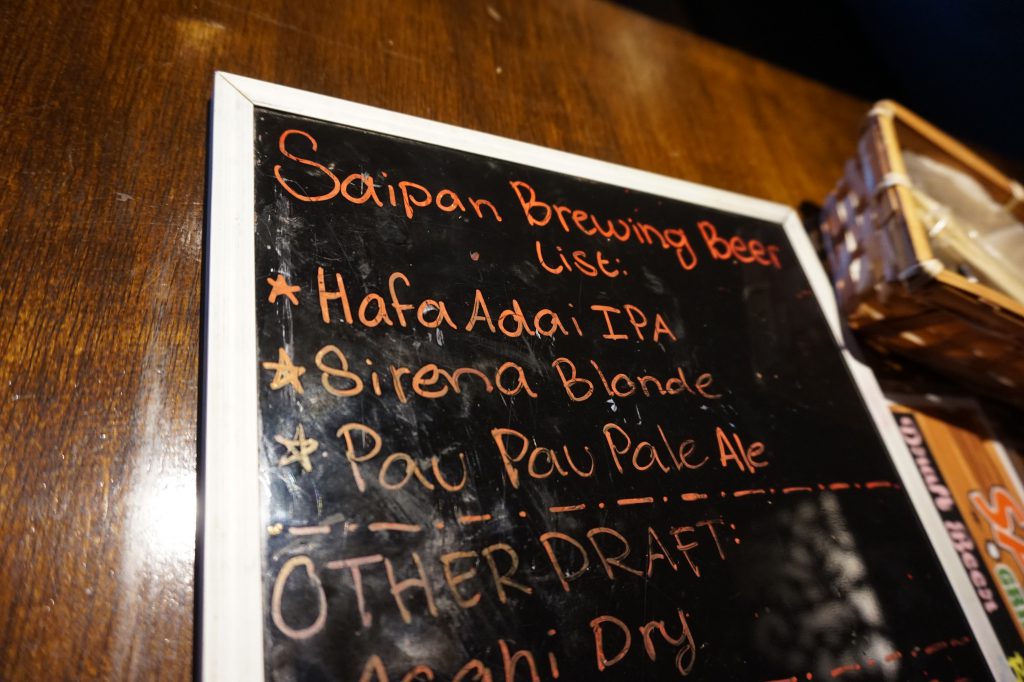 Saipan Brewing Beer
List:
★ Hafa Adai IPA
★ Sirena Blonde
★ Pau Pau Pale Ale
OTHER DRAFT:
Asahi Dry
Draft Beer